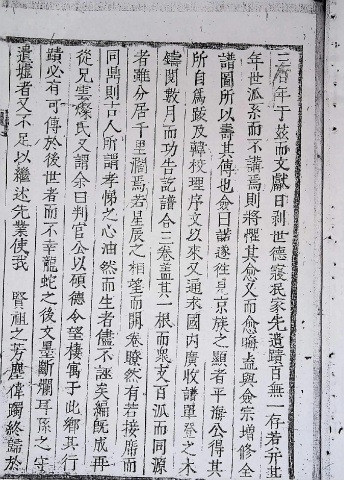 三百年于茲而文獻日剥世德寢泯家先遺蹟百無一存若幷其
年世派系而不講焉則將懼其愈久而愈晦盍與僉宗增修全
譜圖所以壽其傳也僉曰諾遂徃見京族之顯者平海公得其
所自爲跋及韓校理序文以來又通求國内廣收譜單登之木
鑄閱數月而功告訖譜合三卷盖其一根而衆支百派而同源
者雖分居千里濶焉若星辰之相望而開卷瞭然有若接席而
同鼎則古人所謂孝悌之心油然而生者儘不誣矣編旣成再
從兄雲燦氏又謂余曰判官公以碩德令望棲寓于此鄕其行
蹟必有可傳於後世者而不幸龍蛇之後文墨斷爛耳孫之守
遺墟者又不足以繼述先業使我 賢祖之芳塵偉躅終歸於